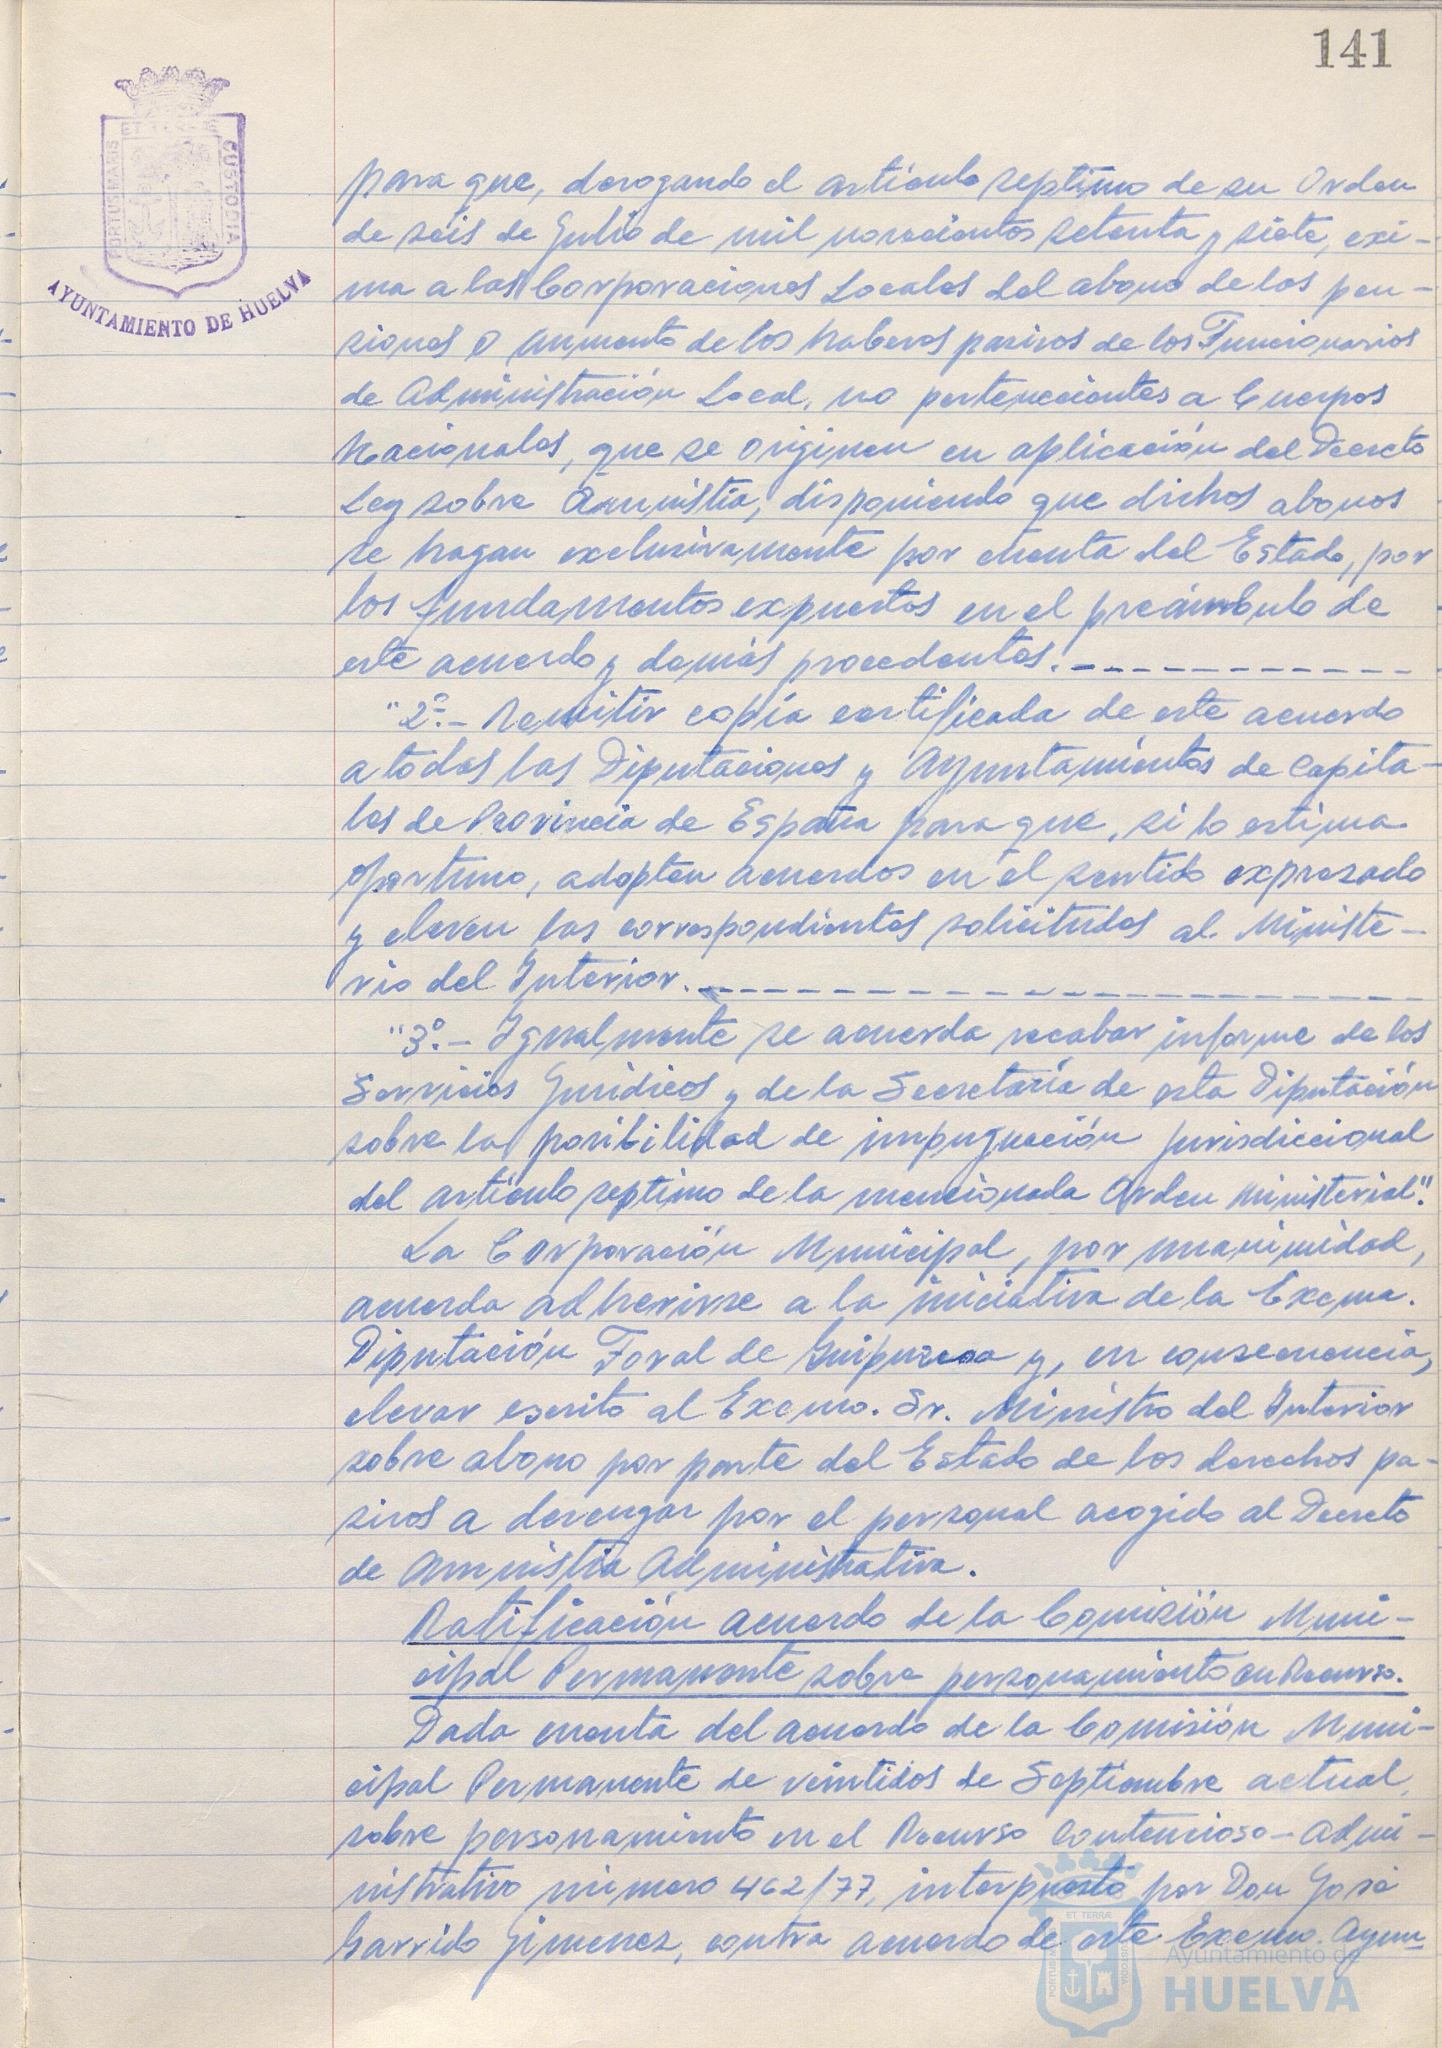 141
PORTUS MARIS ET TERRÆ CUSTODIA
AYUNTAMIENTO DE HUELVA
para que, derogando el artículo septimo de su Orden
de seis de Julio de mil novecientos setenta y siete, exi-
ma a las Corporaciones Locales del abono de las pen-
siones o aumento de los haberes pasivos de los Funcionarios
de Administración Local, no pertenecientes a Cuerpos
Nacionales, que se originen en aplicación del Decreto
Ley sobre Amnistía, disponiendo que dichos abonos
se hagan exclusivamente por cuenta del Estado, por
los fundamentos expuestos en el preámbulo de
este acuerdo y demás procedentes.
"2º.- Remitir copia certificada de este acuerdo
a todas las Diputaciones y Ayuntamientos de Capita-
les de Provincia de España para que, si lo estima
oportuno, adopten acuerdos en el sentido expresado
y eleven las correspondientes solicitudes al Ministe-
rio del Interior.
"3º.- Igualmente se acuerda recabar informe de los
Servicios Jurídicos y de la Secretaría de esta Diputación
sobre la posibilidad de impugnación jurisdiccional
del artículo septimo de la mencionada Orden ministerial".
La Corporación Municipal, por unanimidad,
acuerda adherirse a la iniciativa de la Excma.
Diputación Foral de Guipuzcoa y, en consecuencia,
elevar escrito al Excmo. Sr. Ministro del Interior
sobre abono por parte del Estado de los derechos pa-
sivos a devengar por el personal acogido al Decreto
de Amnistía Administrativa.
Ratificación acuerdo de la Comisión Muni-
cipal Permanente sobre personamiento en Recurso.
Dada cuenta del acuerdo de la Comisión Muni-
cipal Permanente de veintidos de Septiembre actual,
sobre personamiento en el Recurso Contencioso-Admi-
nistrativo número 462/77, interpuesto por Don José
Garrido Gimenez, contra acuerdo de este Excmo. Ayun
PORTUS MARIS ET TERRÆ CUSTODIA
Ayuntamiento de
HUELVA